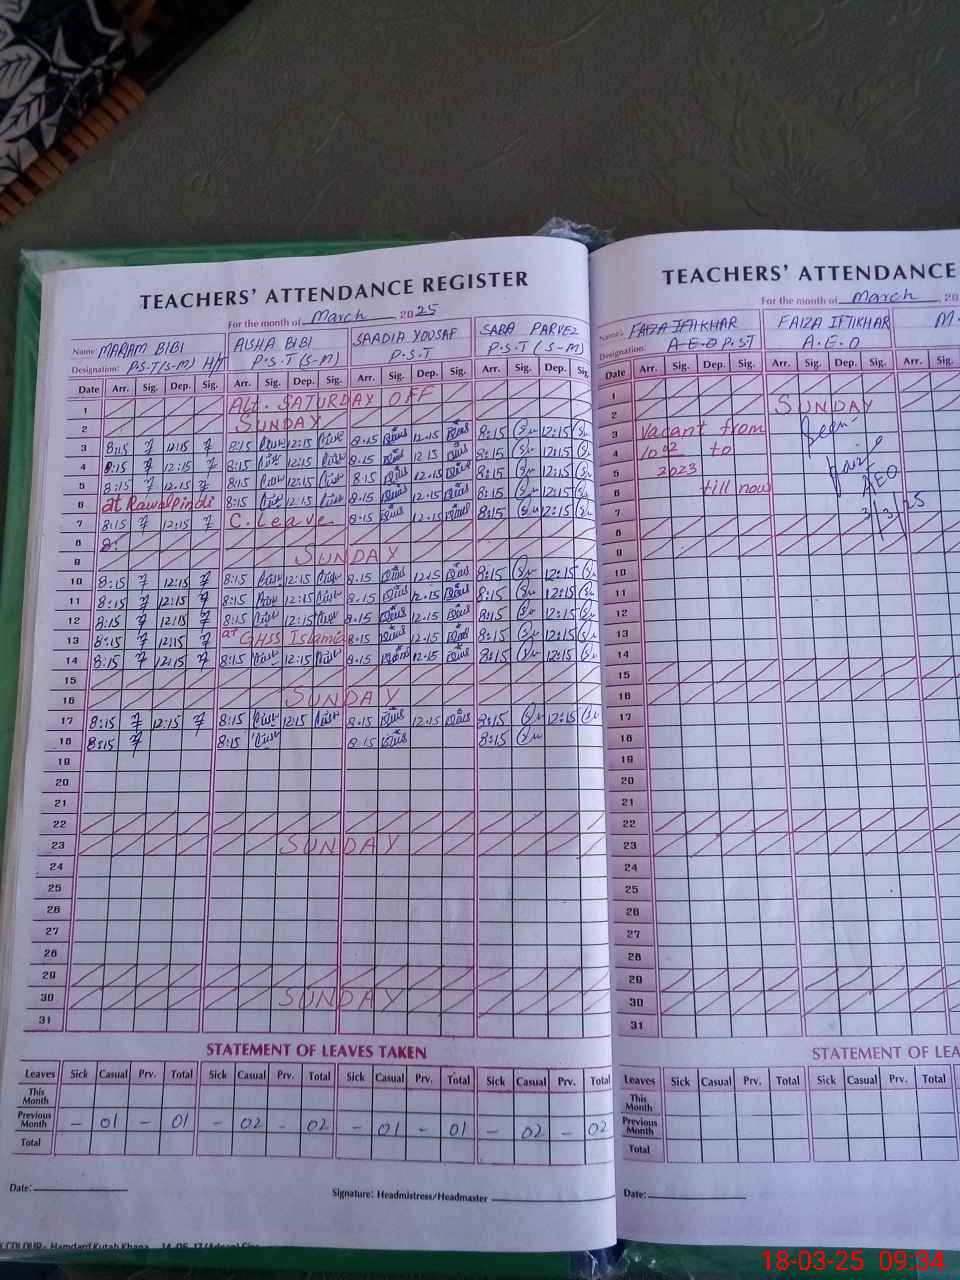 TEACHERS' ATTENDANCE REGISTER
For the month of March, 2025
Name: MARIAM BIBI AISHA BIBI SAADIA YOUSAF SABA PARVEZ
Designation: P.S.T(S-M) H/T P.S.T(S-M) P.S.T P.S.T(S-M)
Date Arr. Sig. Dep. Sig. Arr. Sig. Dep. Sig. Arr. Sig. Dep. Sig. Arr. Sig. Dep. Sig.
1 Alt. SATURDAY OFF
2 SUNDAY
3 8:15 12:15 8:15 12:15 8.15 12.15 8:15 12:15
4 8:15 12:15 8:15 12:15 8.15 12.15 8:15 12:15
5 8:15 12:15 8:15 12:15 8.15 12.15 8:15 12:15
6 at Rawalpindi 8:15 12:15 8.15 12.15 8:15 12:15
7 8:15 12:15 C. Leave 8.15 12.15 8:15 12:15
8 8:
9 SUNDAY
10 8:15 12:15 8:15 12:15 8.15 12.15 8:15 12:15
11 8:15 12:15 8:15 12:15 8.15 12.15 8:15 12:15
12 8:15 12:15 8:15 12:15 8.15 12.15 8:15 12:15
13 8:15 12:15 at GHSS Islamia 8.15 12.15 8:15 12:15
14 8:15 12:15 8:15 12:15 8.15 12.15 8:15 12:15
15
16 SUNDAY
17 8:15 12:15 8:15 12:15 8.15 12.15 8:15 12:15
18 8:15 8:15 8.15 8:15
19
20
21
22
23 SUNDAY
24
25
26
27
28
29
30 SUNDAY
31
STATEMENT OF LEAVES TAKEN
Leaves Sick Casual Prv. Total Sick Casual Prv. Total Sick Casual Prv. Total Sick Casual Prv. Total
This Month
Previous Month – 01 – 01 – 02 – 02 – 01 – 01 – 02 – 02
Total
Date:
Signature: Headmistress/Headmaster
Hamdard Kutab Khana
TEACHERS' ATTENDANCE
For the month of March, 20
Name: FAIZA IFTIKHAR FAIZA IFTIKHAR M.
Designation: A.E.O P.ST A.E.O
Date Arr. Sig. Dep. Sig. Arr. Sig. Dep. Sig. Arr. Sig.
1
2 SUNDAY
3 Vacant from Seen
4 10 to
5 2023 AEO
6 till now
7 3/3/25
8
9
10
11
12
13
14
15
16
17
18
19
20
21
22
23
24
25
26
27
28
29
30
31
STATEMENT OF LEA
Leaves Sick Casual Prv. Total Sick Casual Prv. Total Sick
This Month
Previous Month
Total
Date:
18-03-25 09:34